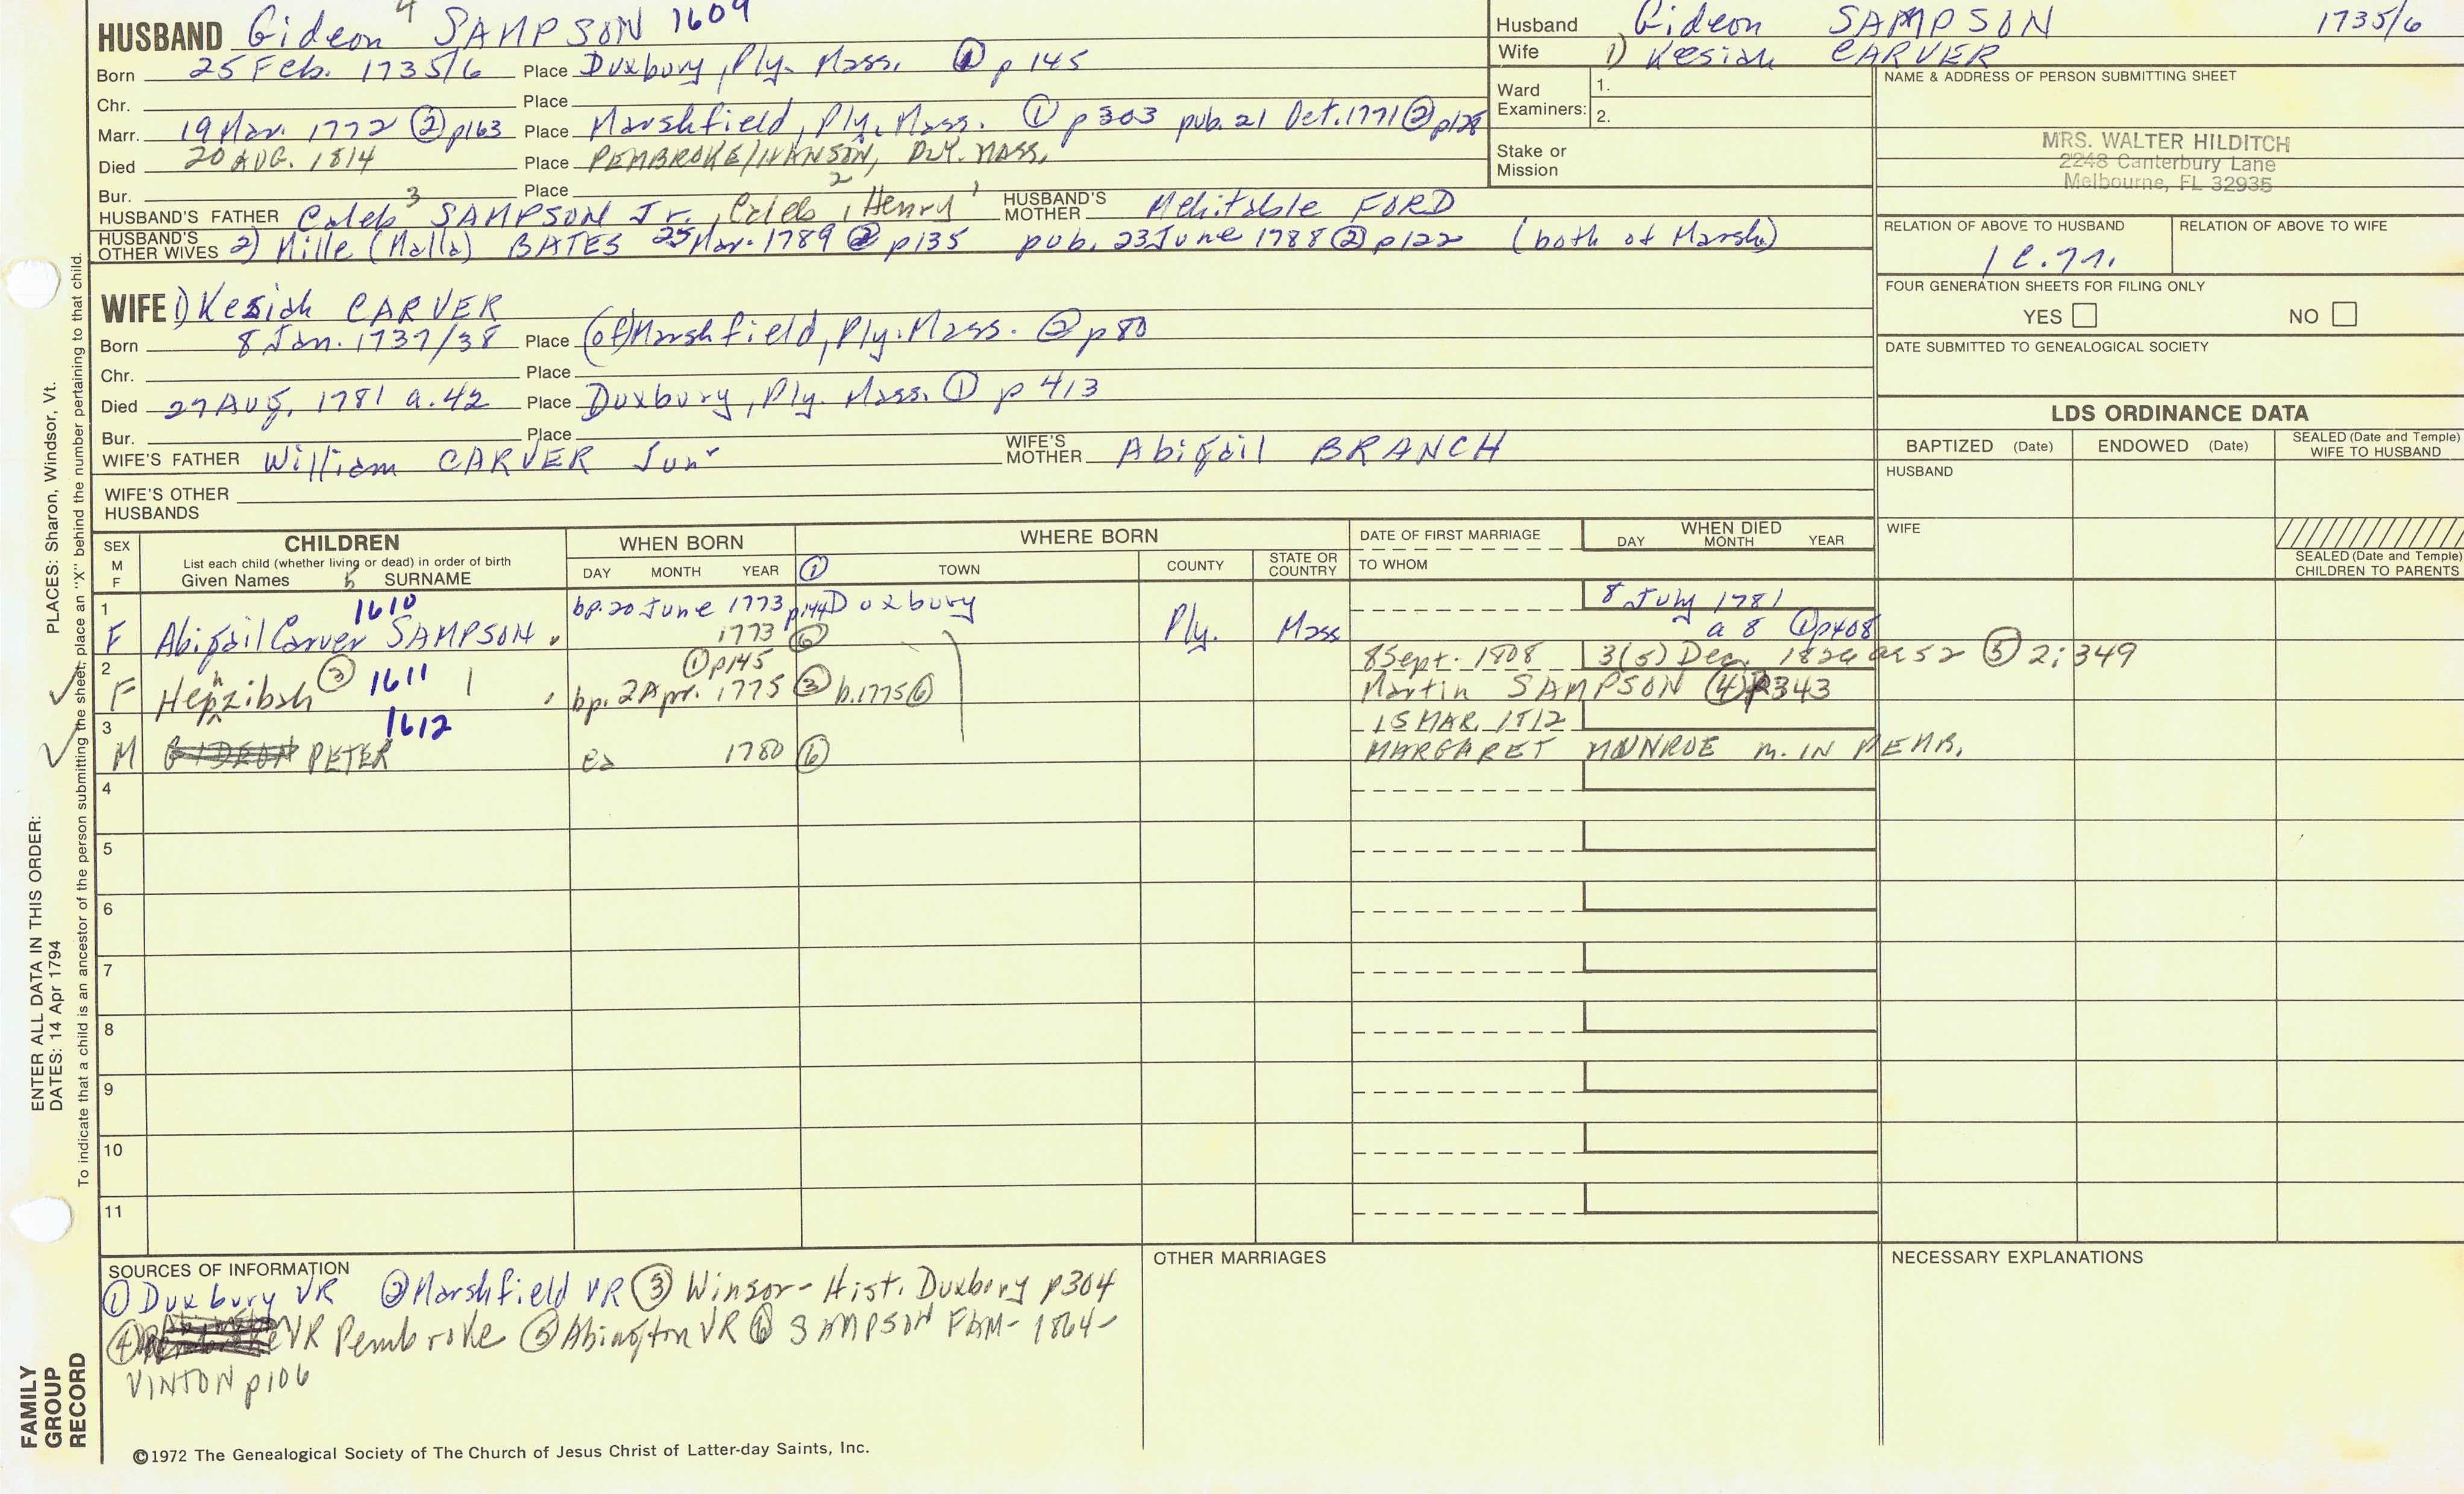 HUSBAND Gideon 4 SAMPSON 1609
Born 25 Feb. 1735/6 Place Duxbury, Ply. Mass. ① p 145
Chr. Place
Marr. 19 Mar. 1772 ② p163 Place Marshfield, Ply. Mass. ① p 303 pub. 21 Oct. 1771 ② p128
Died 20 AUG. 1814 Place PEMBROKE/HANSON, PLY. MASS.
Bur. Place
HUSBAND'S FATHER Caleb 3 SAMPSON Jr., Caleb 2, Henry 1 HUSBAND'S MOTHER Mehitable FORD
HUSBAND'S OTHER WIVES 2) Mille (Malla) BATES 25 Mar. 1789 ② p135 pub. 23 June 1788 ② p122 (both of Marsh.)
WIFE 1) Kesiah CARVER
Born 8 Jan. 1737/38 Place (of) Marshfield, Ply. Mass. ② p 80
Chr. Place
Died 27 Aug. 1781 a. 42 Place Duxbury, Ply. Mass. ① p 413
Bur. Place
WIFE'S FATHER William CARVER Junr WIFE'S MOTHER Abigail BRANCH
WIFE'S OTHER HUSBANDS
Husband Gideon SAMPSON 1735/6
Wife 1) Kesiah CARVER
Ward Examiners: 1.
2.
Stake or Mission
NAME & ADDRESS OF PERSON SUBMITTING SHEET
MRS. WALTER HILDITCH
2248 Canterbury Lane
Melbourne, FL 32935
RELATION OF ABOVE TO HUSBAND RELATION OF ABOVE TO WIFE
FOUR GENERATION SHEETS FOR FILING ONLY
YES NO
DATE SUBMITTED TO GENEALOGICAL SOCIETY
LDS ORDINANCE DATA
BAPTIZED (Date) ENDOWED (Date) SEALED (Date and Temple) WIFE TO HUSBAND
HUSBAND
WIFE
SEALED (Date and Temple) CHILDREN TO PARENTS
SEX M F
CHILDREN
List each child (whether living or dead) in order of birth
Given Names 5 SURNAME
WHEN BORN
DAY MONTH YEAR
WHERE BORN
① TOWN COUNTY STATE OR COUNTRY
DATE OF FIRST MARRIAGE
TO WHOM
WHEN DIED
DAY MONTH YEAR
1 1610 bp. 20 June 1773 p144 Duxbury 8 July 1781
F Abigail Carver SAMPSON 1773 ⑥ Ply. Mass a 8 ① p408
2 ① p145 8 Sept. 1808 3(5) Dec. ae 52 ⑤ 2:349
F Hephzibah ③ 1611 bp. 2 Apr. 1775 ③ b. 1775 ⑥ Martin SAMPSON ④ p343
3 1612 15 MAR. 1812
M GIDEON PETER Ca 1780 ⑥ MARGARET MUNROE m. IN PEMB.
4
5
6
7
8
9
10
11
SOURCES OF INFORMATION
① Duxbury VR ② Marshfield VR ③ Winsor - Hist. Duxbury p304
④ VR Pembroke ⑤ Abington VR ⑥ SAMPSON FAM - 1864 -
VINTON p106
OTHER MARRIAGES
NECESSARY EXPLANATIONS
©1972 The Genealogical Society of The Church of Jesus Christ of Latter-day Saints, Inc.
PLACES: Sharon, Windsor, Vt.
ENTER ALL DATA IN THIS ORDER:
DATES: 14 Apr 1794
To indicate that a child is an ancestor of the person submitting the sheet, place an "X" behind the number pertaining to that child.
FAMILY GROUP RECORD